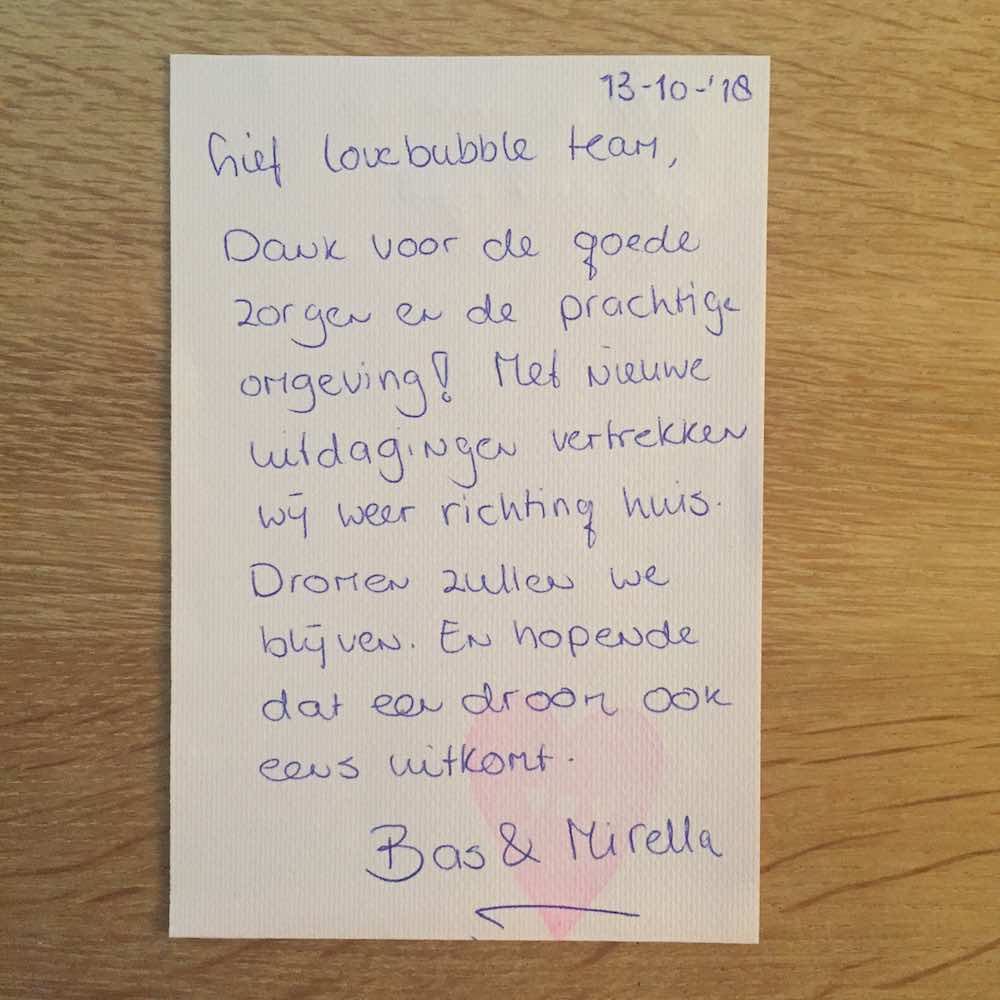 13-10-'18
Lief lovebubble team,
Dank voor de goede
zorgen en de prachtige
omgeving! Met nieuwe
uitdagingen vertrekken
wij weer richting huis.
Dromen zullen we
blijven. En hopende
dat een droom ook
eens uitkomt.
Bas & Mirella